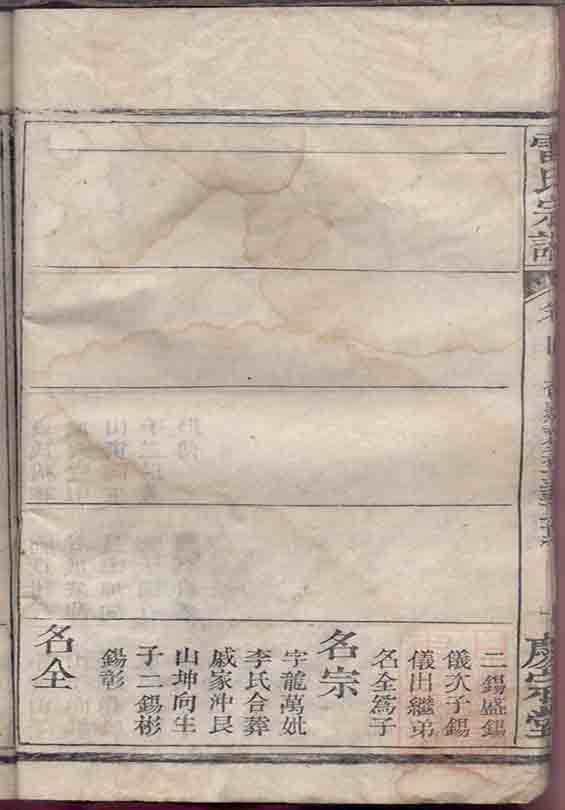 雷氏宗譜
慶宗堂
二錫盛錫
儀次子錫
儀出繼弟
名全爲子
名宗
字龍萬妣
李氏合葬
戚家沖艮
山坤向生
子二錫彬
錫彰
名全